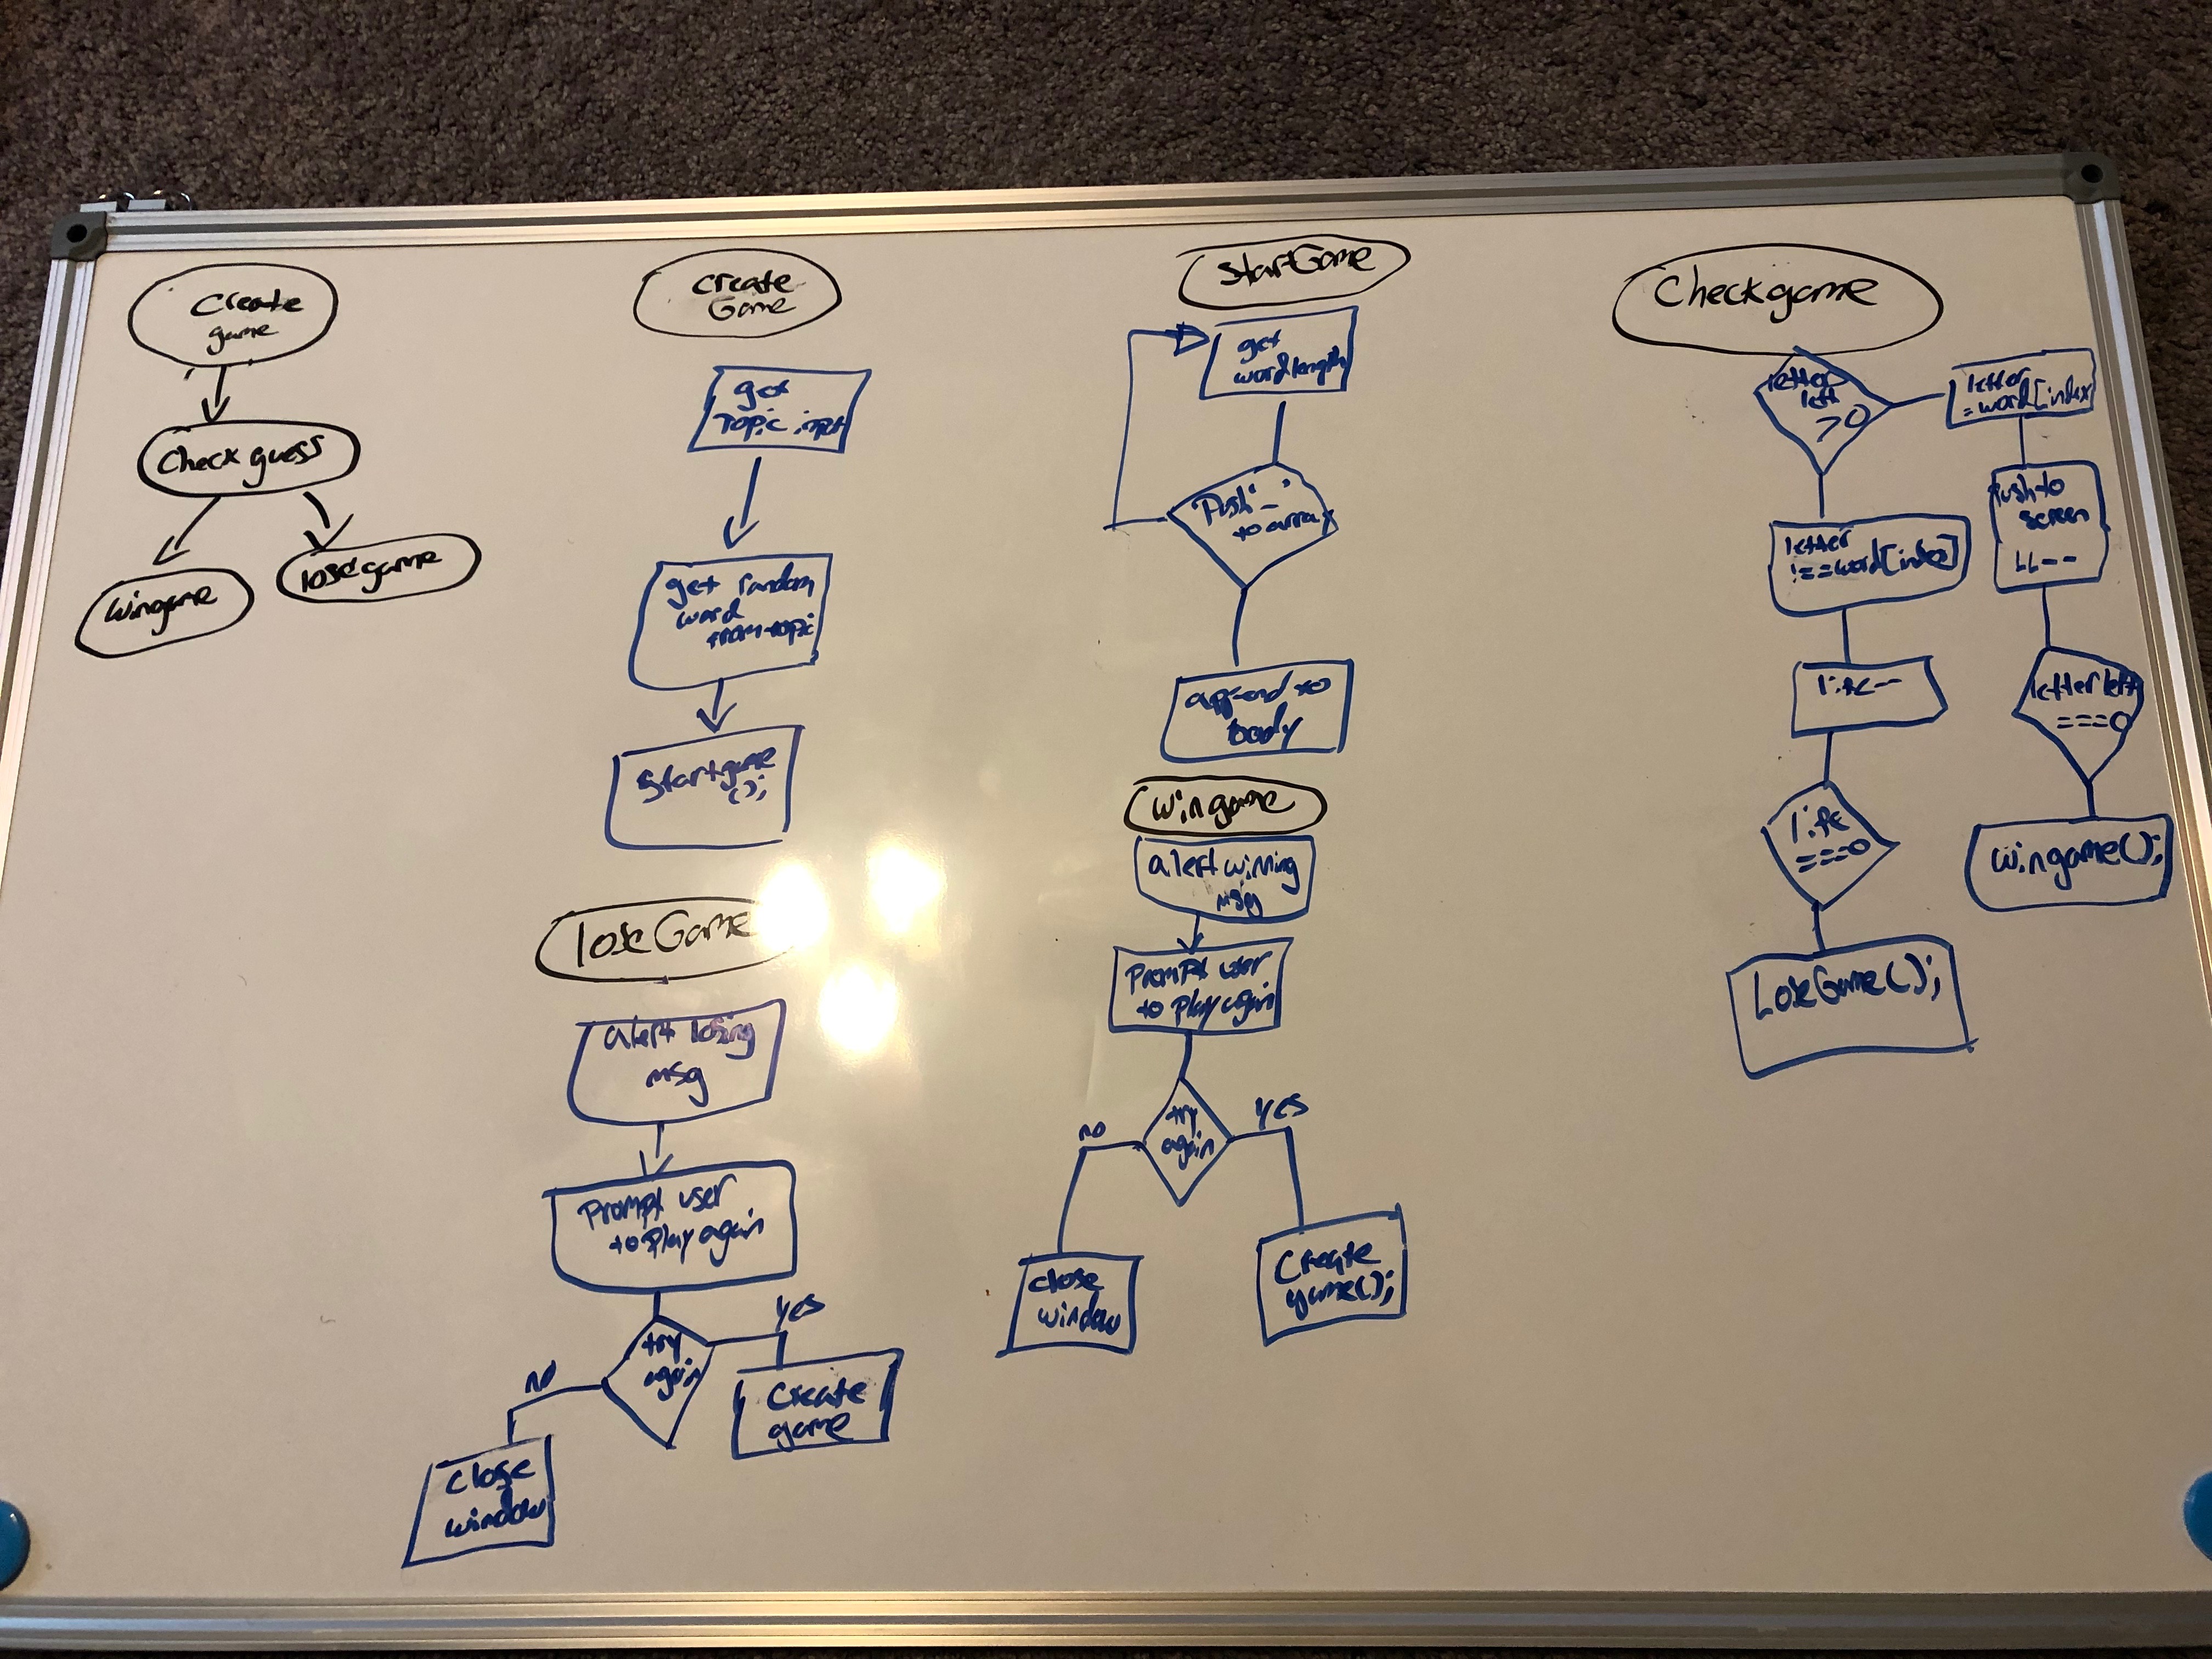 Create
game
Check guess
wingame
losegame
Create
Game
get
Topic input
get random
word
from topic
Startgame
();
loseGame
alert losing
msg
Prompt user
to Play again
try
again
no
yes
close
window
Create
game
StartGame
get
word length
Push '_'
to array
append to
body
wingame
alert winning
msg
Prompt user
to Play again
try
again
no
yes
close
window
Create
game();
Checkgame
letter
left
>0
letter
=word[index
Push to
screen
LL--
letter left
===0
wingame();
letter
!==word[index]
life--
life
===0
LoseGame();